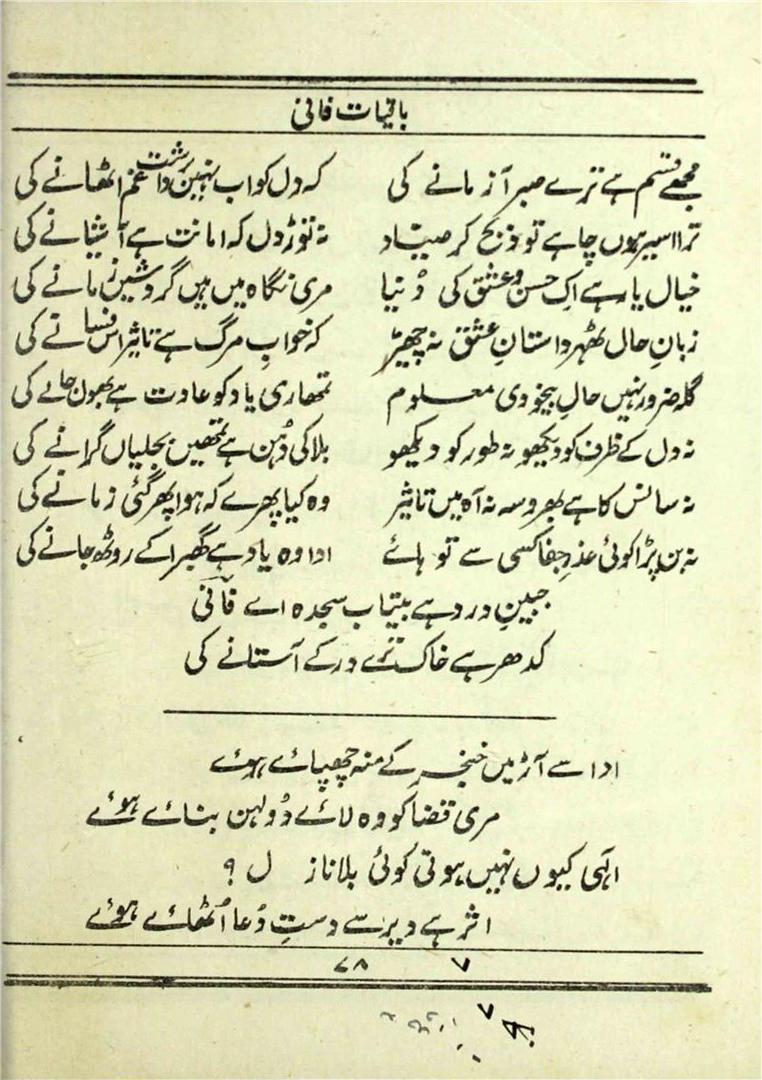 باقیات فانی
مجھے قسم ہے ترے صبر آزمانے کی کہ دل کو اب نہیں برداشت غم اٹھانے کی
ترا اسیر ہوں چاہے تو ذبح کر صیّاد نہ توڑ دل کہ امانت ہے آشیانے کی
خیال یار ہے اِک حسن و عشق کی دُنیا مری نگاہ میں ہیں گردشیں زمانے کی
زبانِ حال ٹھہر داستانِ عشق نہ چھیڑ کہ خوابِ مرگ ہے تاثیر اس فسانے کی
گلہ ضرور نہیں حالِ بیخودی معلوم تمھاری یاد کو عادت ہے بھول جانے کی
نہ دل کے ظرف کو دیکھو نہ طور کو دیکھو بلا کی دُہن ہے تمھیں بجلیاں گرانے کی
نہ سانس کا ہے بھروسہ نہ آہ میں تاثیر وہ کیا پھرے کہ ہوا پھر گئی زمانے کی
نہ بن پڑا کوئی عذرِ جفا کسی سے تو ہائے ادا وہ یاد ہے گھبرا کے روٹھ جانے کی
جبینِ درد ہے بیتاب سجدہ اے فانی
کدھر ہے خاک ترے در کے آستانے کی
ادا سے آڑ میں خنجر کے منہ چھپائے ہوئے
مری قضا کو وہ لائے دُولہن بنائے ہوئے
الٰہی کیوں نہیں ہوتی کوئی بلا نازل ؟
اثر ہے دیر سے دستِ دُعا اُٹھائے ہوئے
۷۸